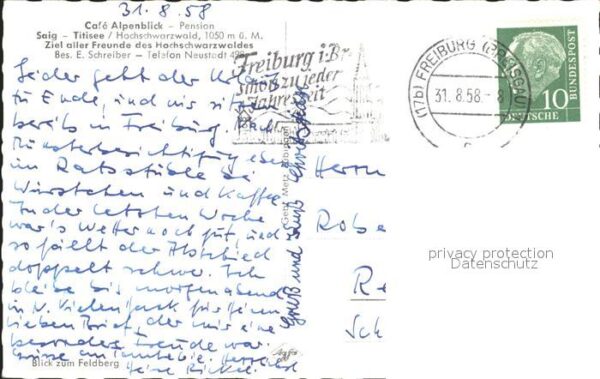 31.8.58
Café Alpenblick - Pension
Saig - Titisee / Hochschwarzwald, 1050 m ü. M.
Ziel aller Freunde des Hochschwarzwaldes
Bes. E. Schreiber - Telefon Neustadt
Leider geht der Urlaub
zu Ende, und wir sitzen
bereits in Freiburg. Nach
Münsterbesichtigung eben
im Ratsstüble bei
Würstchen und Kaffee
In der letzten Woche
war's Wetter noch gut, und
so fällt der Abschied
doppelt schwer. Ich
bleibe bis morgen abend
in N. Vielen Dank für Ihren
lieben Brief, der mir eine
besondere Freude war.
Blick zum Feldberg
Gruß und
Gebr. Metz
Agfa
Freiburg i. Br.
schön zu jeder
Jahreszeit
(17b) FREIBURG (BREISGAU)
31.8.58.-8
10
DEUTSCHE
BUNDESPOST
Herrn
Robe
Re
Sch
privacy protection
Datenschutz